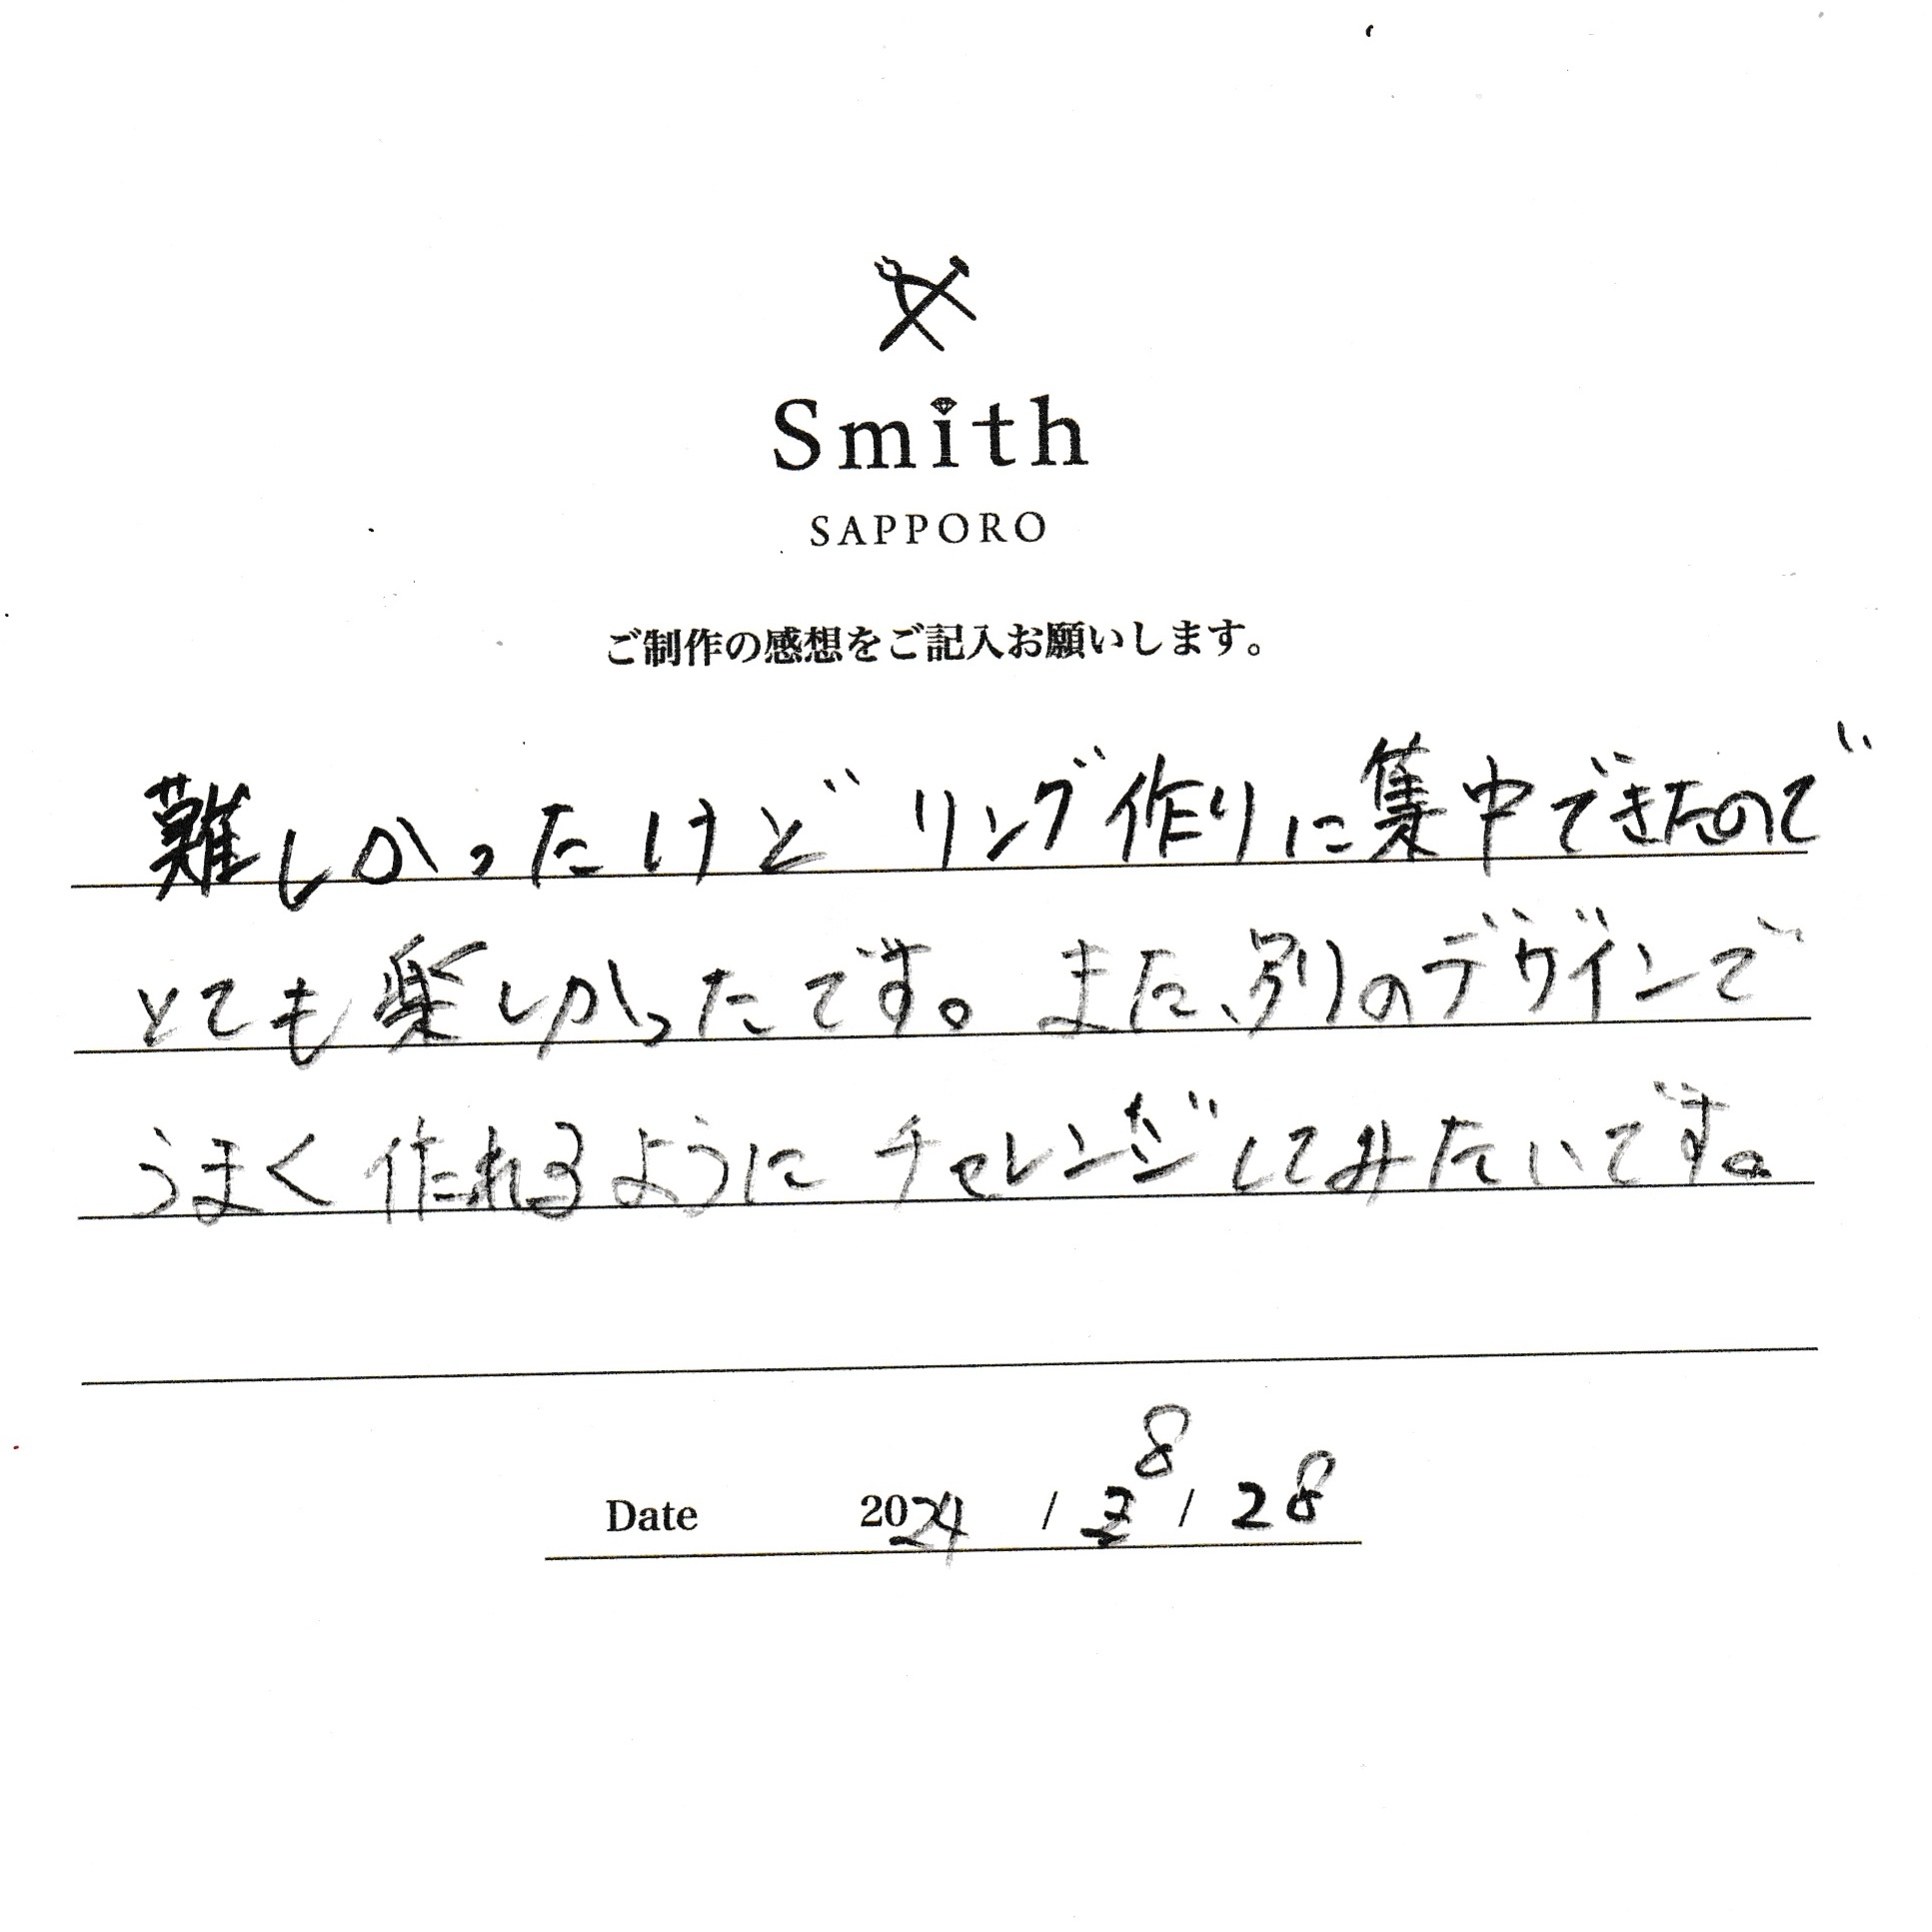 Smith
SAPPORO
ご制作の感想をご記入お願いします。
難しかったけど リング作りに集中できたので
とても楽しかったです。また、別のデザインで
うまく作れるように チャレンジしてみたいです。
Date 2024 / 8 / 28